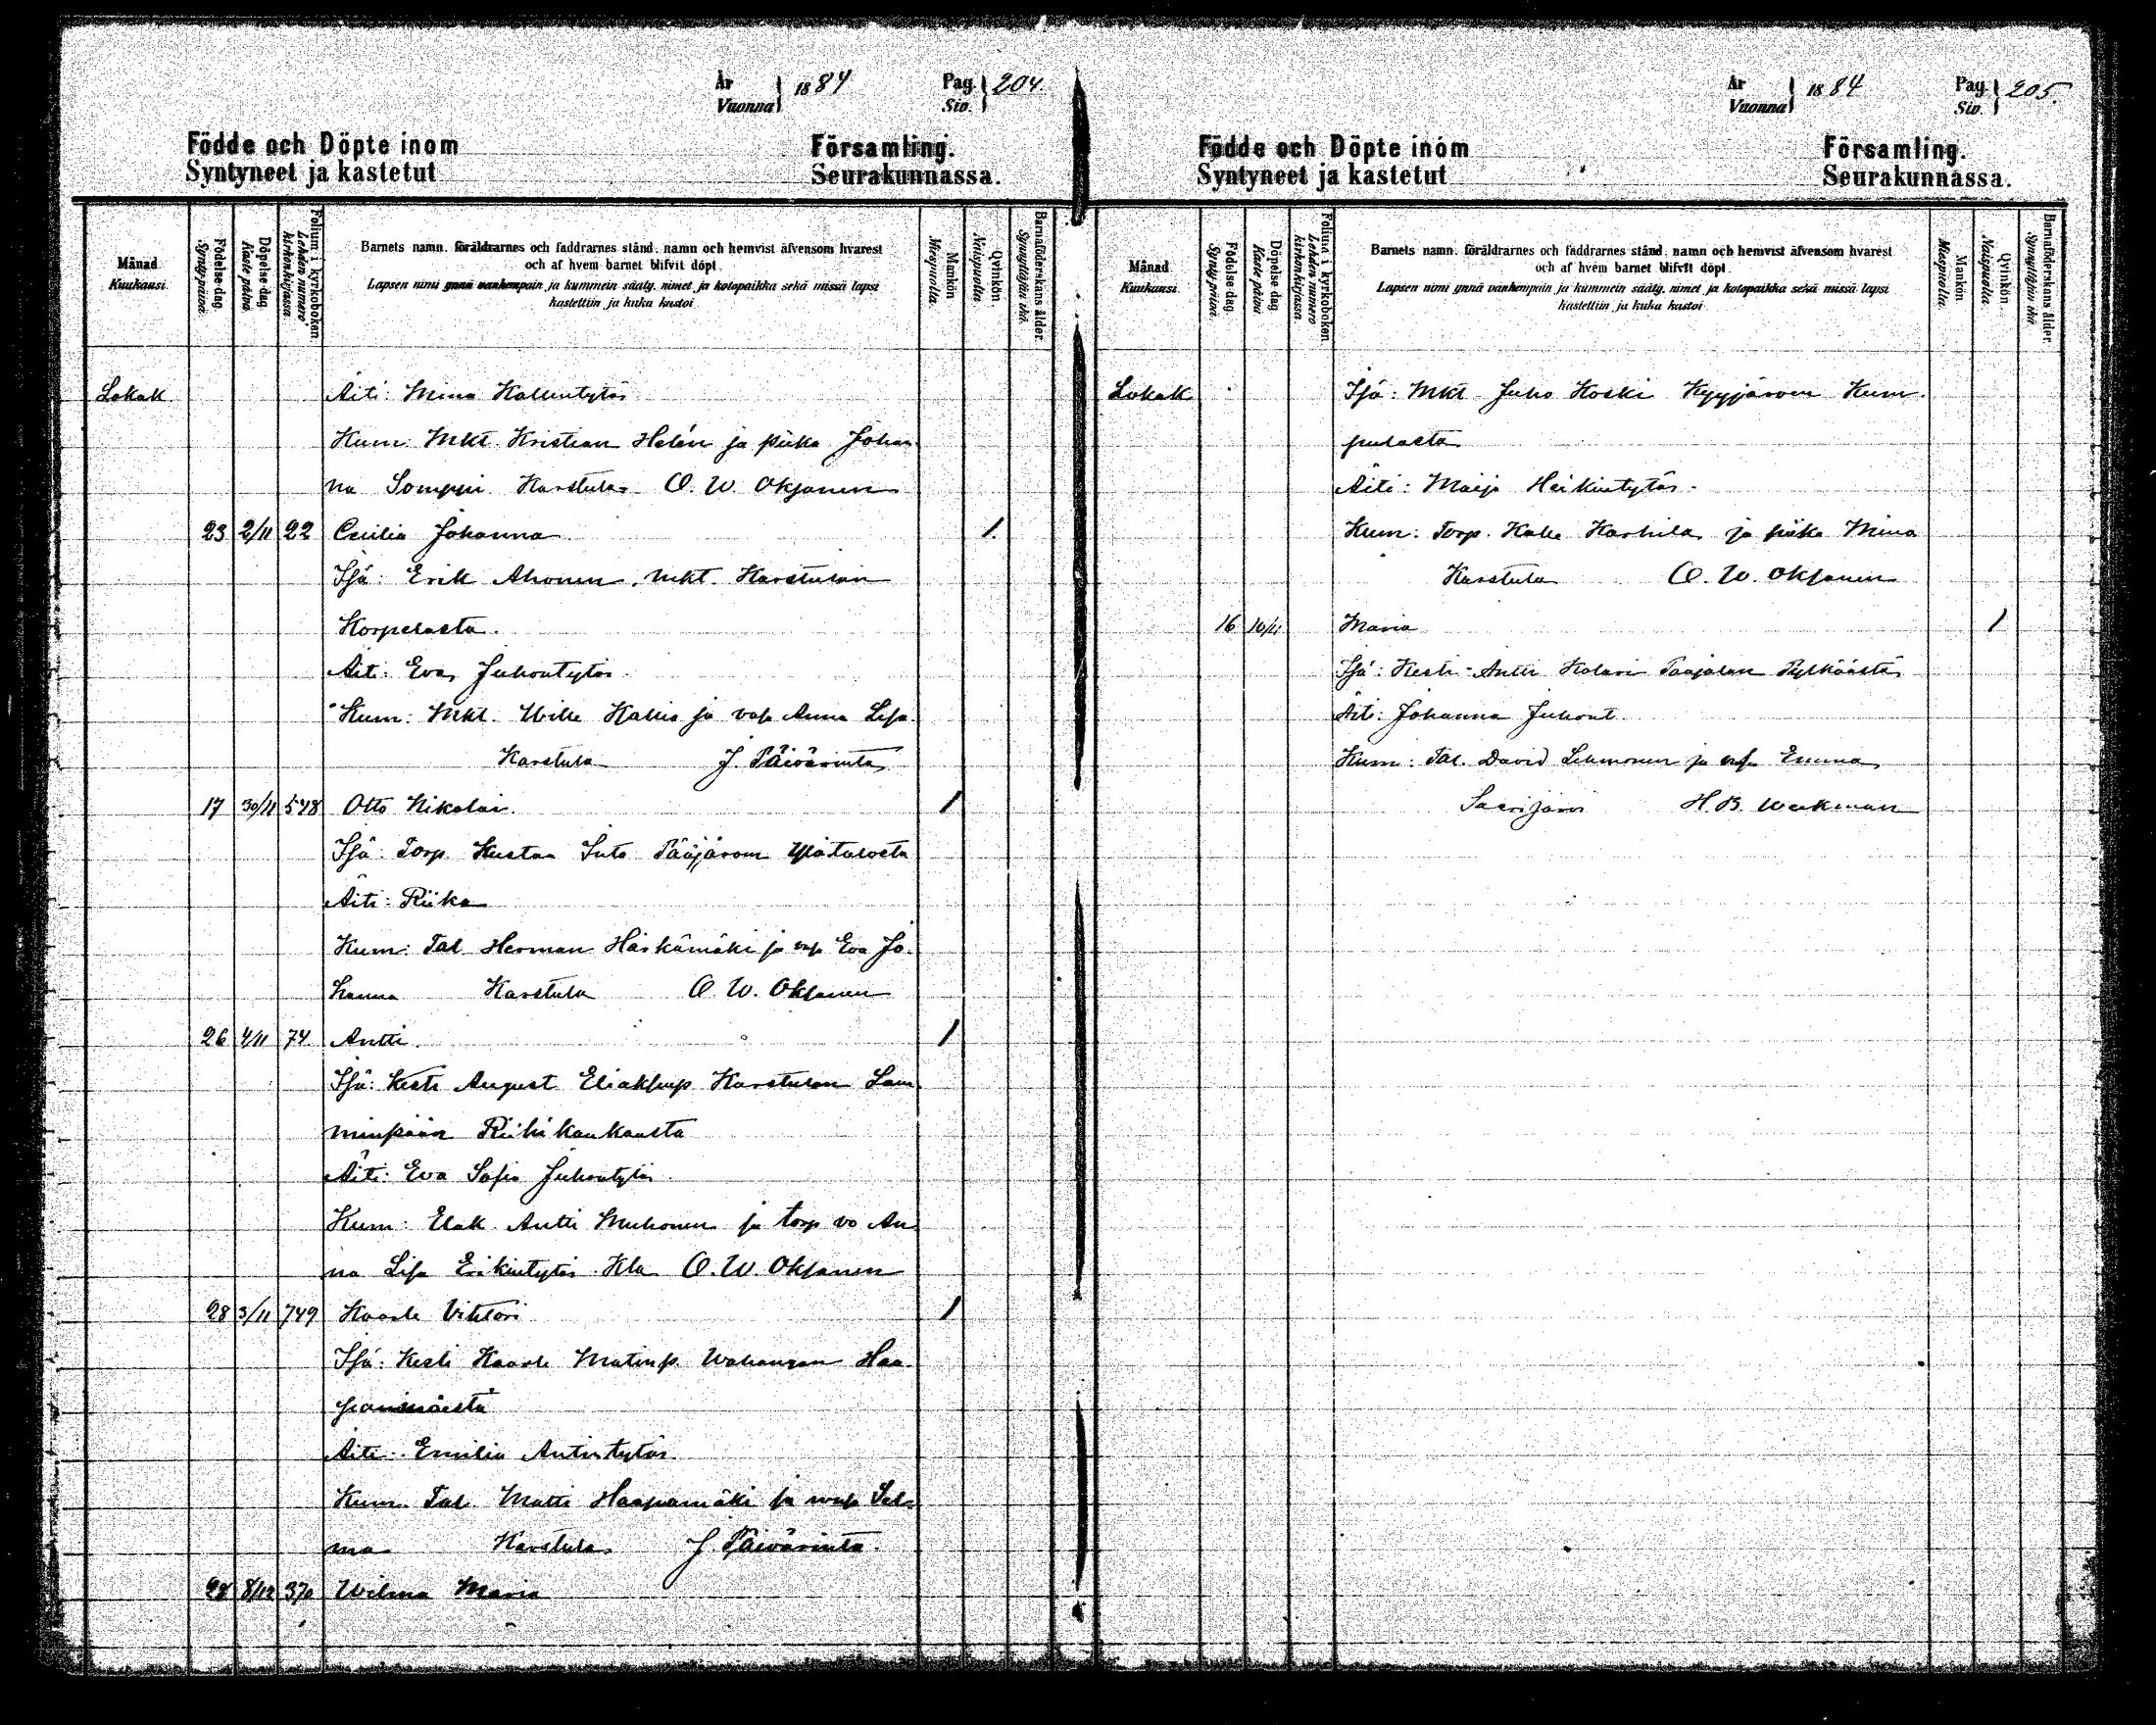 År
Vuonna } 1884
Pag.
Siv. } 204.
Födde och Döpte inom Församling.
Syntyneet ja kastetut Seurakunnassa.
Månad
Kuukausi.
Födelse-dag.
Synty päivä.
Döpelse-dag
Kaste päivä
Folium i kyrkoboken.
Lehden numero
kirkonkirjassa.
Barnets namn, föräldrarnes och faddrarnes stånd, namn och hemvist äfvensom hvarest
och af hvem barnet blifvit döpt.
Lapsen nimi ynnä vanhempain ja kummein sääty, nimet ja kotopaikka sekä missä lapsi
kastettiin ja kuka kastoi.
Mankön
Miespuolta.
Qvinkön.
Naispuolta.
Barnaföderskans ålder.
Synnyttäjän ikä.
Lokak. Äiti: Mina Kallentytär
Kum: Mkt. Kristian Helén ja piika Johan
na Somppi Karstula O. W. Oksanen
23 2/11 22 Cecilia Johanna 1.
Isä: Erik Ahonen, mkt. Karstulan
Korpelasta.
Äiti: Eva Juhontytär.
Kum: Mkt. Wille Kallio ja vap Anna Lisa
Karstula J. Päivärinta
17 30/11 548 Otto Nikolai. 1
Isä: Torp. Kustaa Pääjärven Ylätalosta
Äiti: Riika
Kum: Tal Herman Härkämäki ja vap Eva Jo
hanna Karstula O. W. Oksanen
26 4/11 74. Antti. 1
Isä: Kesti August Eliakimp Karstulan Lam
minpään Riihikankaasta
Äiti: Eva Sofia Juhontytär.
Kum: Elak. Antti Muhonen ja torp vo An
na Lisa Erikintytär. Kla O. W. Oksanen
28 3/11 749 Kaarle Vihtori 1
Isä: Kesti Kaarle Matinp. Wahangan Haa
panimäestä
Äiti: Emilia Antintytär.
Kum. Tal. Matti Haapamäki ja vap Sel
ma Karstula J. Päivärinta.
28 8/12 370 Wilma Maria
År
Vuonna } 1884
Pag.
Siv. } 205.
Födde och Döpte inom Församling.
Syntyneet ja kastetut Seurakunnassa.
Månad
Kuukausi.
Födelse-dag.
Synty päivä.
Döpelse-dag
Kaste päivä
Folium i kyrkoboken.
Lehden numero
kirkonkirjassa
Barnets namn, föräldrarnes och faddrarnes stånd, namn och hemvist äfvensom hvarest
och af hvem barnet blifvit döpt.
Lapsen nimi ynnä vanhempain ja kummein sääty, nimet ja kotopaikka sekä missä lapsi
kastettiin ja kuka kastoi.
Mankön.
Miespuolta.
Qvinkön
Naispuolta.
Barnaföderskans ålder.
Synnyttäjän ikä
Lokak Isä: Mkt Juho Koski Kyyjärven Kum
pulasta
Äiti: Maija Heikintytär.
Kum: Torp. Kalle Karhila ja piika Mina
Karstula O. W. Oksanen
16 10/11 Maria 1
Isä: Kesti Antti Kolari Paajalan Pylköästä
Äiti: Johanna Juhont.
Kum: Tal. David Lehmonen ja vap Emma
Saarijärvi H. B. Weckman